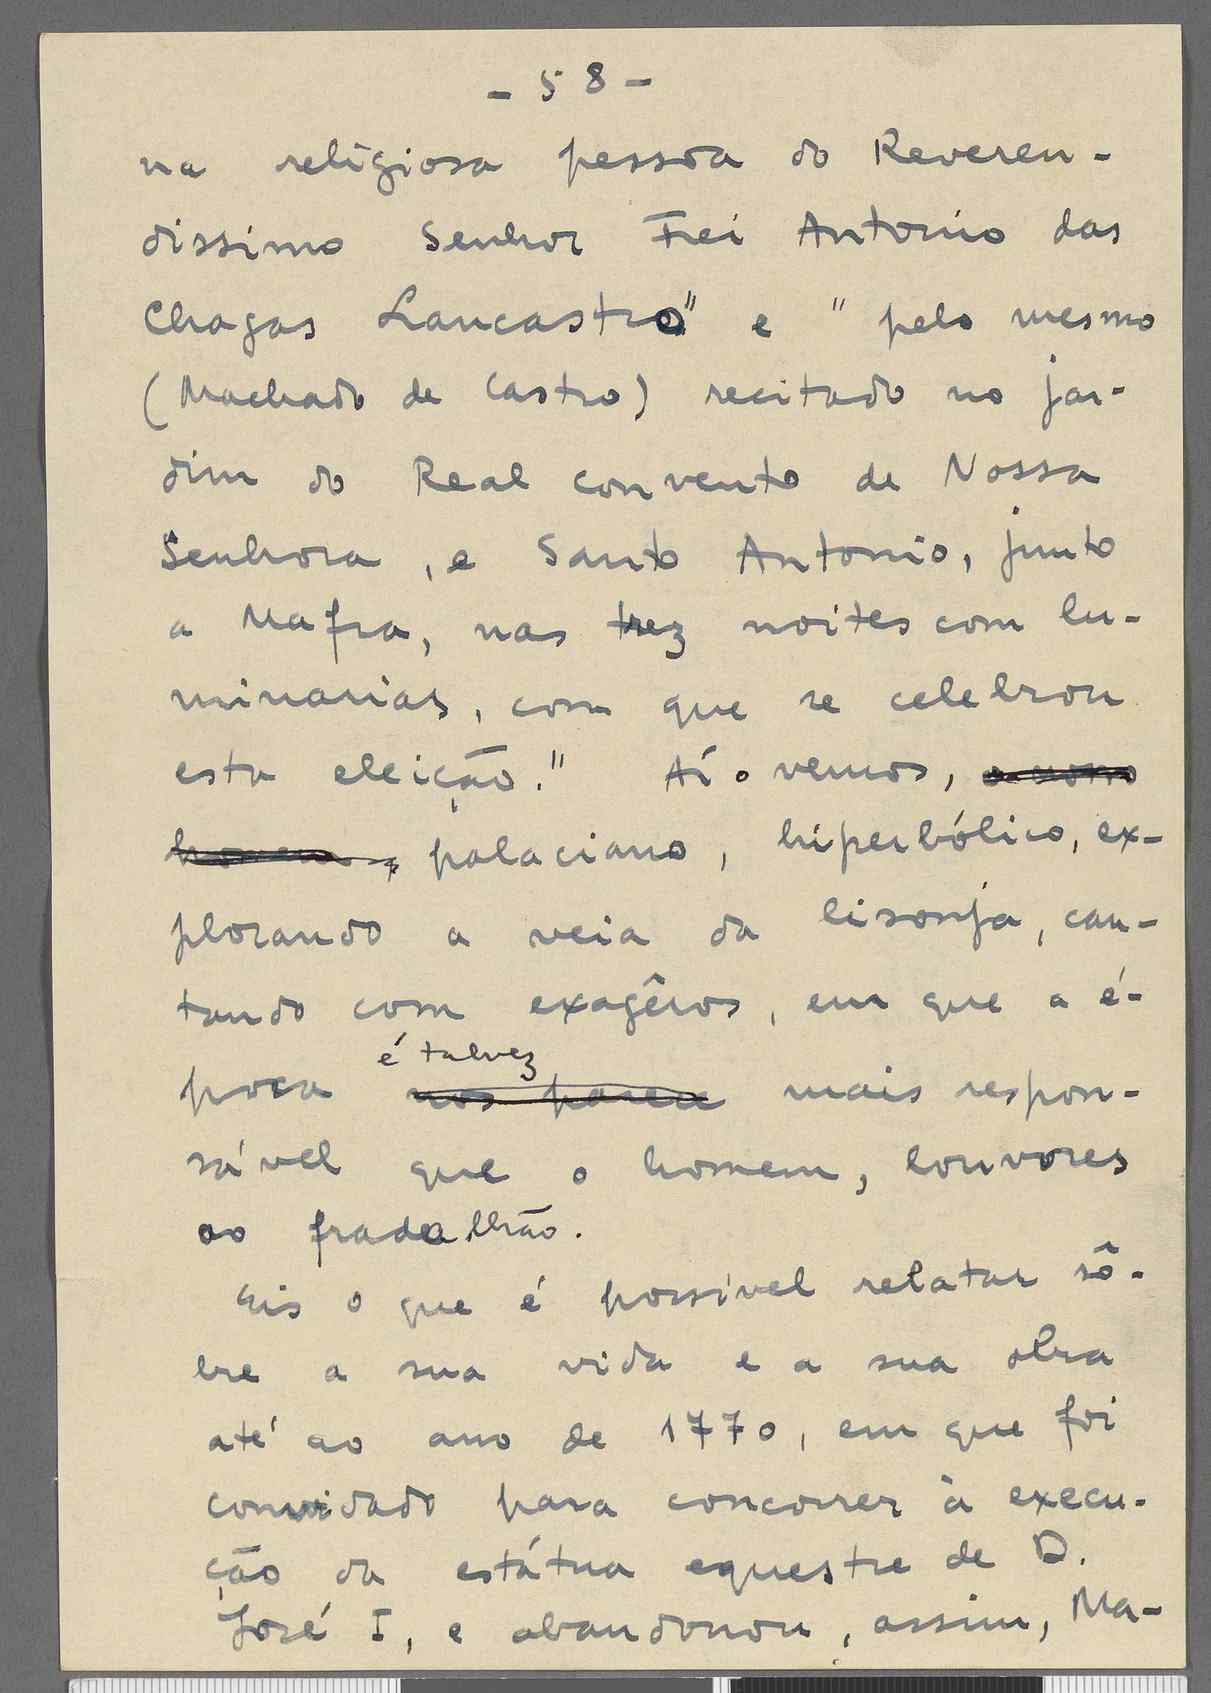 - 58 -
na religiosa pessoa do Reveren-
dissimo Senhor Frei Antonio das
Chagas Lancastro" e "pelo mesmo
(Machado de Castro) recitado no jar-
dim do Real convento de Nossa
Senhora, e Santo Antonio, junto
a Mafra, nas trez noites com lu-
minarias, com que se celebrou
esta eleição." Aí o vemos, o nosso
homem, palaciano, hiperbólico, ex-
plorando a veia da lisonja, can-
tando com exagêros, em que a é-
é talvez
poca nos parece mais respon-
sável que o homem, louvores
ao fradalhão.
Eis o que é possível relatar sô-
bre a sua vida e a sua obra
até ao ano de 1770, em que foi
convidado para concorrer à execu-
ção da estátua equestre de D.
José I, e abandonou, assim, Ma-